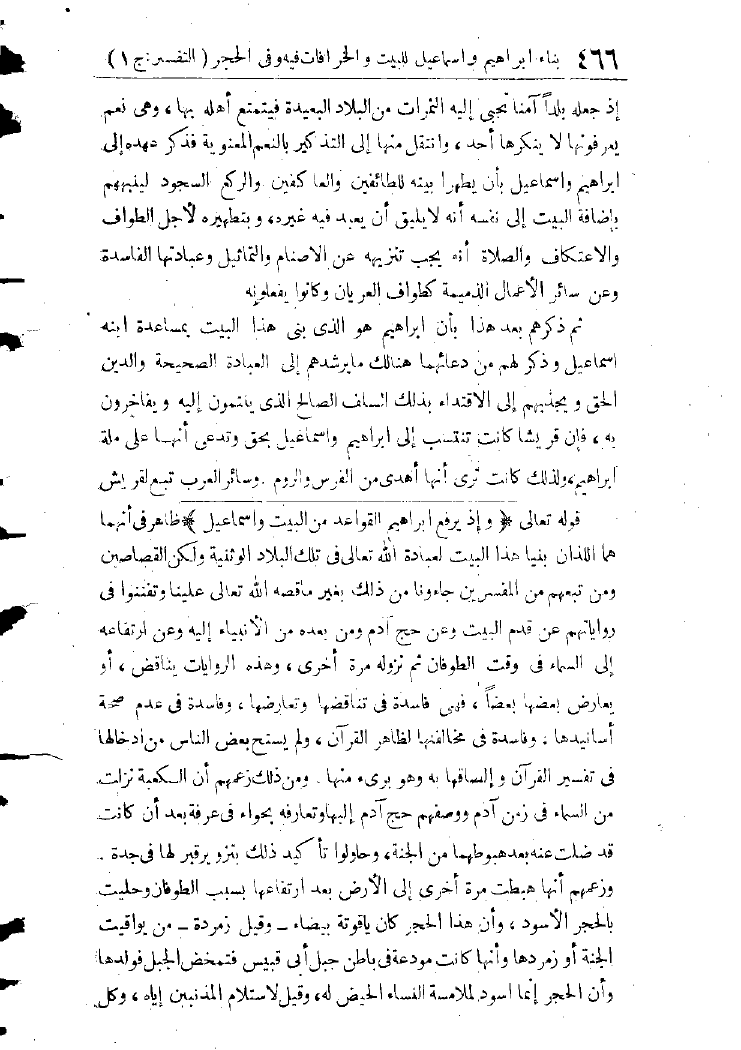 ٤٦٦ بناء ابراهيم واسماعيل للبيت والخرافات فيه وفى الحجر (التفسير: ج ١)
إذ جعله بلداً آمنا تجبى إليه الثمرات من البلاد البعيدة فيتمتع أهله بها ، وهى نعم
يعرفونها لا ينكرها أحد ، وانتقل منها إلى التذكير بالنعم المعنوية فذكر عهده إلى
ابراهيم واسماعيل بأن يطهرا بيته للطائفين والعاكفين والركع السجود لينبههم
بإضافة البيت إلى نفسه أنه لايليق أن يعبد فيه غيره، وبتطهيره لأجل الطواف
والاعتكاف والصلاة أنه يجب تنزيهه عن الاصنام والتماثيل وعبادتها الفاسدة
وعن سائر الأعمال الذميمة كطواف العريان وكانوا يفعلونه
ثم ذكرهم بعد هذا بأن ابراهيم هو الذى بنى هذا البيت بمساعدة ابنه
اسماعيل وذكر لهم من دعائهما هنالك مايرشدهم إلى العبادة الصحيحة والدين
الحق ويجذبهم إلى الاقتداء بذلك السلف الصالح الذى ينتمون إليه ويفاخرون
به ، فإن قريشا كانت تنتسب إلى ابراهيم واسماعيل بحق وتدعى أنهـا على ملة
ابراهيم، ولذلك كانت ترى أنها أهدى من الفرس والروم . وسائر العرب تبع لقريش
قوله تعالى ﴿ وإذ يرفع ابراهيم القواعد من البيت واسماعيل ﴾ ظاهر فى أنهما
هما اللذان بنيا هذا البيت لعبادة الله تعالى فى تلك البلاد الوثنية ولكن القصاصين
ومن تبعهم من المفسرين جاءونا من ذلك بغير ماقصه الله تعالى علينا وتفننوا فى
رواياتهم عن قدم البيت وعن حج آدم ومن بعده من الأنبياء إليه وعن ارتفاعه
إلى السماء فى وقت الطوفان ثم نزوله مرة أخرى ، وهذه الروايات يناقض ، أو
يعارض بعضها بعضاً ، فهى فاسدة فى تناقضها وتعارضها ، وفاسدة فى عدم صحة
أسانيدها . وفاسدة فى مخالفتها لظاهر القرآن ، ولم يستح بعض الناس من ادخالها
فى تفسير القرآن وإلصاقها به وهو برىء منها . ومن ذلك زعمهم أن الكعبة نزلت
من السماء فى زمن آدم ووصفهم حج آدم إليها وتعارفه بحواء فى عرفة بعد أن كانت
قد ضلت عنه بعد هبوطهما من الجنة، وحاولوا تأكيد ذلك بتزوير قبر لها فى جدة .
وزعمهم أنها هبطت مرة أخرى إلى الأرض بعد ارتفاعها بسبب الطوفان وحليت
بالحجر الأسود ، وأن هذا الحجر كان ياقوتة بيضاء ـ وقيل زمردة ـ من يواقيت
الجنة أو زمردها وأنها كانت مودعة فى باطن جبل أبى قبيس فتمخض الجبل فولدها
وأن الحجر إنما اسود لملامسة النساء الحيض له، وقيل لاستلام المذنبين إياه ، وكل